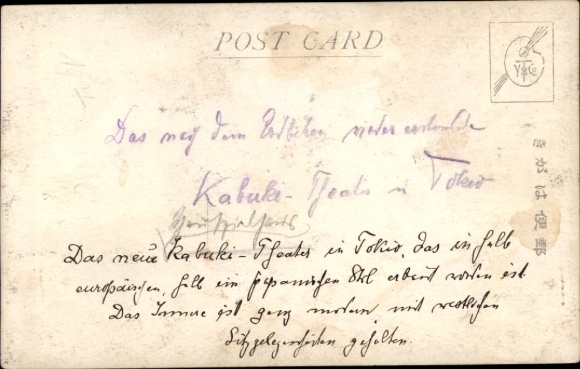 POST CARD
Das nach dem Erdbeben wieder erstandene
Kabuki-Theater in Tokio
Das neue Kabuki-Theater in Tokio, das in halb
europäischen, halb im japanischen Stil erbaut worden ist.
Das Innere ist ganz modern mit westlichen
Sitzgelegenheiten gehalten.
きがは便郵